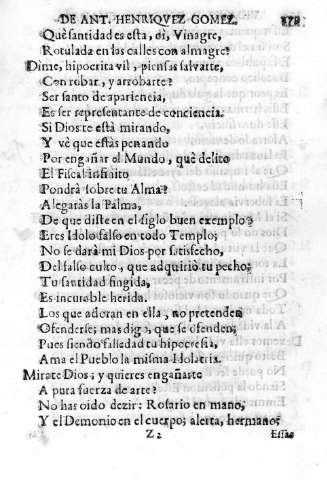 DE ANT. HENRIQVEZ GOMEZ.
Què santidad es esta, di, Vinagre,
Rotulada en las calles con almagre?
Dime, hipocrita vil, piensas salvarte,
Con robar, y arrobarte?
Ser santo de apariencia,
Es ser representante de conciencia.
Si Dios te està mirando,
Y vè que estàs penando
Por engañar al Mundo, què delito
El Fiscal infinito
Pondrà sobre tu Alma?
Alegaràs la Palma,
De que diste en el siglo buen exemplo?
Eres Idolo falso en todo Templo;
No se darà mi Dios por satisfecho,
Del falso culto, que adquiriò tu pecho;
Tu santidad fingida,
Es incurable herida.
Los que adoran en ella, no pretenden
Ofenderse; mas digo, que se ofenden;
Pues siendo falsedad tu hipocresia,
Ama el Pueblo la misma Idolatria.
Mirate Dios; y quieres engañarte
A pura fuerza de arte?
No has oido dezir: Rosario en mano,
Y el Demonio en el cuerpo; alerta, hermano;
Z 2
Essas